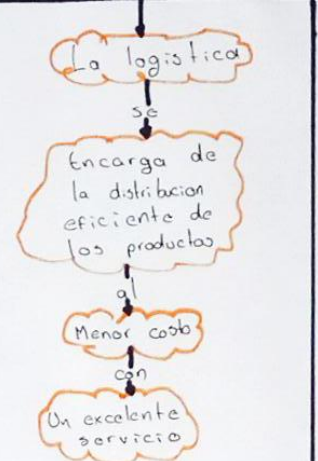 La logistica
se
Encarga de
la distribucion
eficiente de
los productos
al
Menor costo
con
Un excelente
servicio